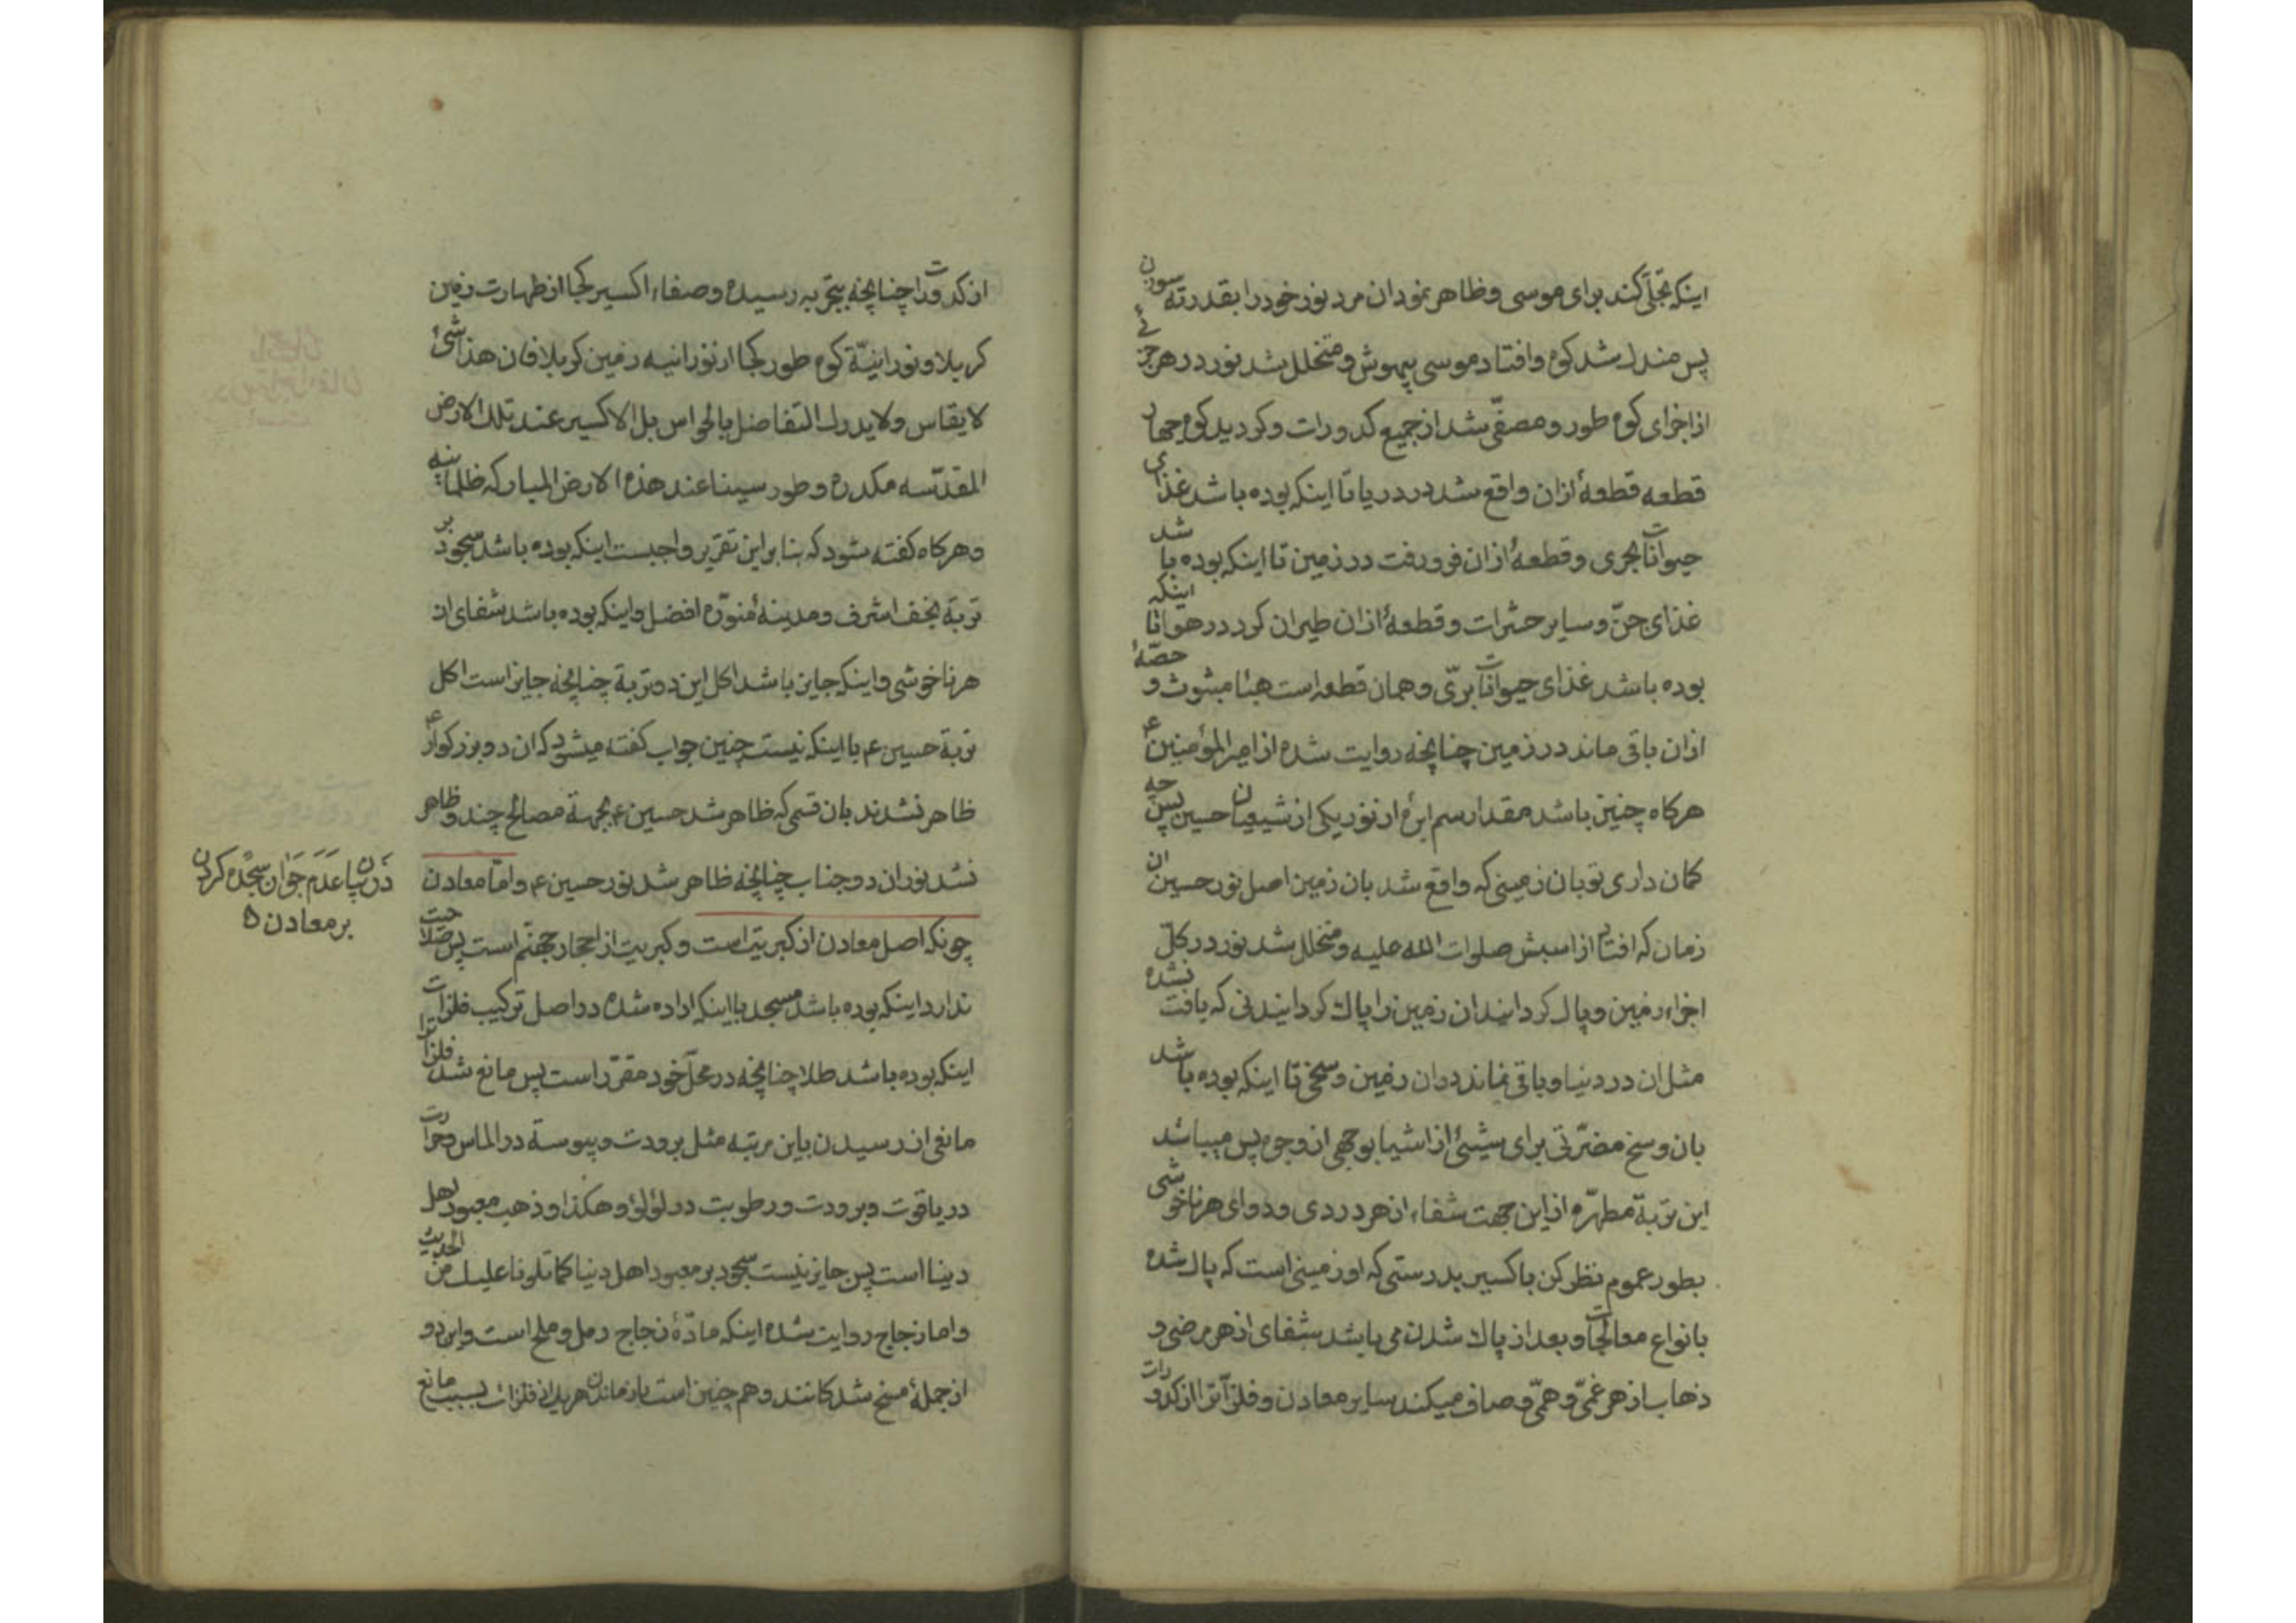 اینکه تجلّی کند برای موسی و ظاهر نمود ان مرد نور خود را بقدر ته سوزن
پس مندك شد کوه و افتاد موسی بیهوش و متخلل شد نور در هر جزئی
از اجزای کوه طور و مصفّی شد از جمیع کدورات و کردید کوه چهار
قطعه قطعهٔ ازان واقع شد در دریا تا اینکه بوده باشد غذای
حیوانات بحری و قطعهٔ ازان فرو رفت در زمین تا اینکه بوده باشد
غذای جنّ و سایر حشرات و قطعهٔ ازان طیران کرد در هوا تا اینکه
بوده باشد غذای حیوانات برّی و همان قطعه است هبٰاء مبثوث و حصّهٔ
ازان باقی ماند در زمین چنانچه روایت شده از امیرالمؤمنین ع
هرکاه چنین باشد مقدار سم ابرهٔ از نور یکی از شیعیان حسین پس چه
کمان داری تو بان زمینی که واقع شد بان زمین اصل نور حسین ان
زمان که افتاد از اسبش صلوات الله علیه و متخلل شد نور در کلّ
اجزاء زمین و پاك کردانید ان زمین را پاك کردانیدنی که یافت نشده
مثل ان در دنیا و باقی نماند در ان زمین وسخی تا اینکه بوده باشد
بان وسخ مضرّتی برای شیئی از اشیا بوجهی از وجوه پس میباشد
این تربة مطهّره از این جهت شفاء از هر دردی و دوای هر ناخوشی
بطور عموم نظر کن باکسیر بدرستی که او زمینی است که پاك شده
بانواع معالجات و بعد از پاك شدن می باشد شفای از هر مرضی و
ذهاب از هر غمّی و همّی و صاف میکند سایر معادن و فلزّات را از کدورات
از کدورت را چنانچه بتجربه رسیده و صفاء اکسیر کجا از طهارت زمین
کربلا و نورانیّة کوه طور کجا از نورانیه زمین کربلا فان هذا شیٔ
لا یقاس ولا یدرك التفاضل بالحواس بل الاکسیر عند تلك الارض
المقدّسه مکدره و طور سینا عند هذه الارض المبارکه ظلمانیه
و هرکاه کفته شود که بنا بر این تقریر واجبست اینکه بوده باشد سجود بر
تربة نجف اشرف و مدینهٔ منوّره افضل و اینکه بوده باشد شفای از
هر ناخوشی و اینکه جایز باشد اکل این دو تربة چنانچه جایز است اکل
تربة حسین ع با اینکه نیست چنین جواب کفته میشود که ان دو بزرکوار ع
ظاهر نشدند بان قسمی که ظاهر شد حسین ع بجهة مصالح چند و ظاهر
نشد نور ان دو جناب چنانچه ظاهر شد نور حسین ع و امّا معادن
چونکه اصل معادن از کبریت است و کبریت از احجار جهنّم است پس صلاحیت
ندارد اینکه بوده باشد مسجد با اینکه اراده شده در اصل ترکیب فلزات
اینکه بوده باشد طلا چنانچه در محلّ خود مقرّر است پس مانع شد فلزات را
مانعی از رسیدن باین مرتبه مثل برودت و یبوسة در الماس و حرارت
در یاقوت و برودت و رطوبت در لؤلؤ و هکذا و ذهب معبود اهل
دینا است پس جایز نیست سجود بر معبود اهل دنیا کما تلونا علیك من الحدیث
و اما زجاج روایت شده اینکه مادّهٔ زجاج رمل و ملح است و این دو
از جملهٔ مسخ شدکانند و هم چنین است باز ماندن هر یك از فلزات بسبب مانع
در بیان عدم جواز سجده کردن
بر معادن